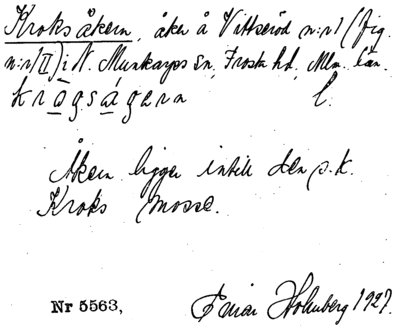 Kroksåkern, åker å Vittseröd n:r 1 (fig.
n:r II) i N. Munkarps sn, Frosta hd, Mlm. län.
krogsågern l.
Åkern ligger intill den s.k.
Kroks mosse.
Nr 5563, Einar Holmberg 1927.